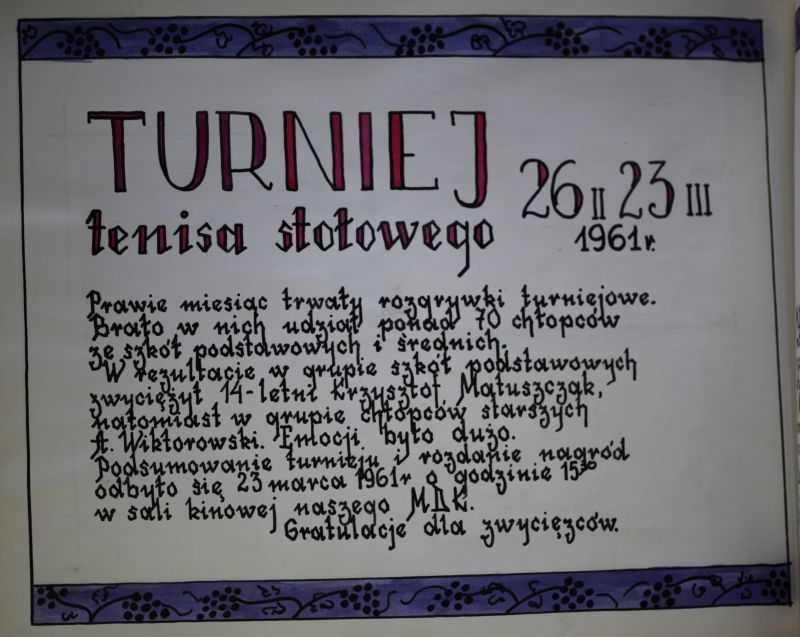 TURNIEJ
tenisa stołowego
26 II 23 III
1961 r.
Prawie miesiąc trwały rozgrywki turniejowe.
Brało w nich udział ponad 70 chłopców
ze szkół podstawowych i średnich.
W rezultacie w grupie szkół podstawowych
zwyciężył 14-letni Krzysztof Matuszczak,
natomiast w grupie chłopców starszych
A. Wiktorowski. Emocji było dużo.
Podsumowanie turnieju i rozdanie nagród
odbyło się 23 marca 1961r o godzinie 15³⁰
w sali kinowej naszego MDK.
Gratulacje dla zwycięzców.